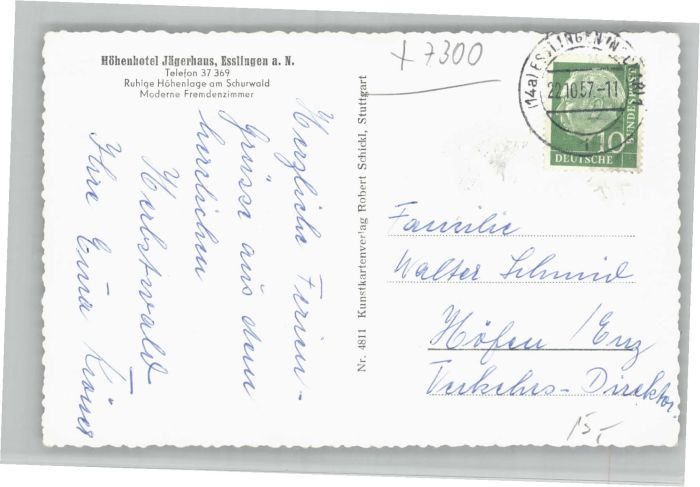 Höhenhotel Jägerhaus, Esslingen a. N.
Telefon 37 369
Ruhige Höhenlage am Schurwald
Moderne Fremdenzimmer
+7300
(14a) ESSLINGEN
22.10.57-11
10
DEUTSCHE
BUNDESPOST
Herzliche Ferien-
grüsse aus dem
herrlichen
Herbstwald
Ihre Erna Kröner
Nr. 4811 Kunstkartenverlag Robert Schickl, Stuttgart
Familie
Walter Schmid
Höfen / Enz
Verkehrs-Direktor.
15,-